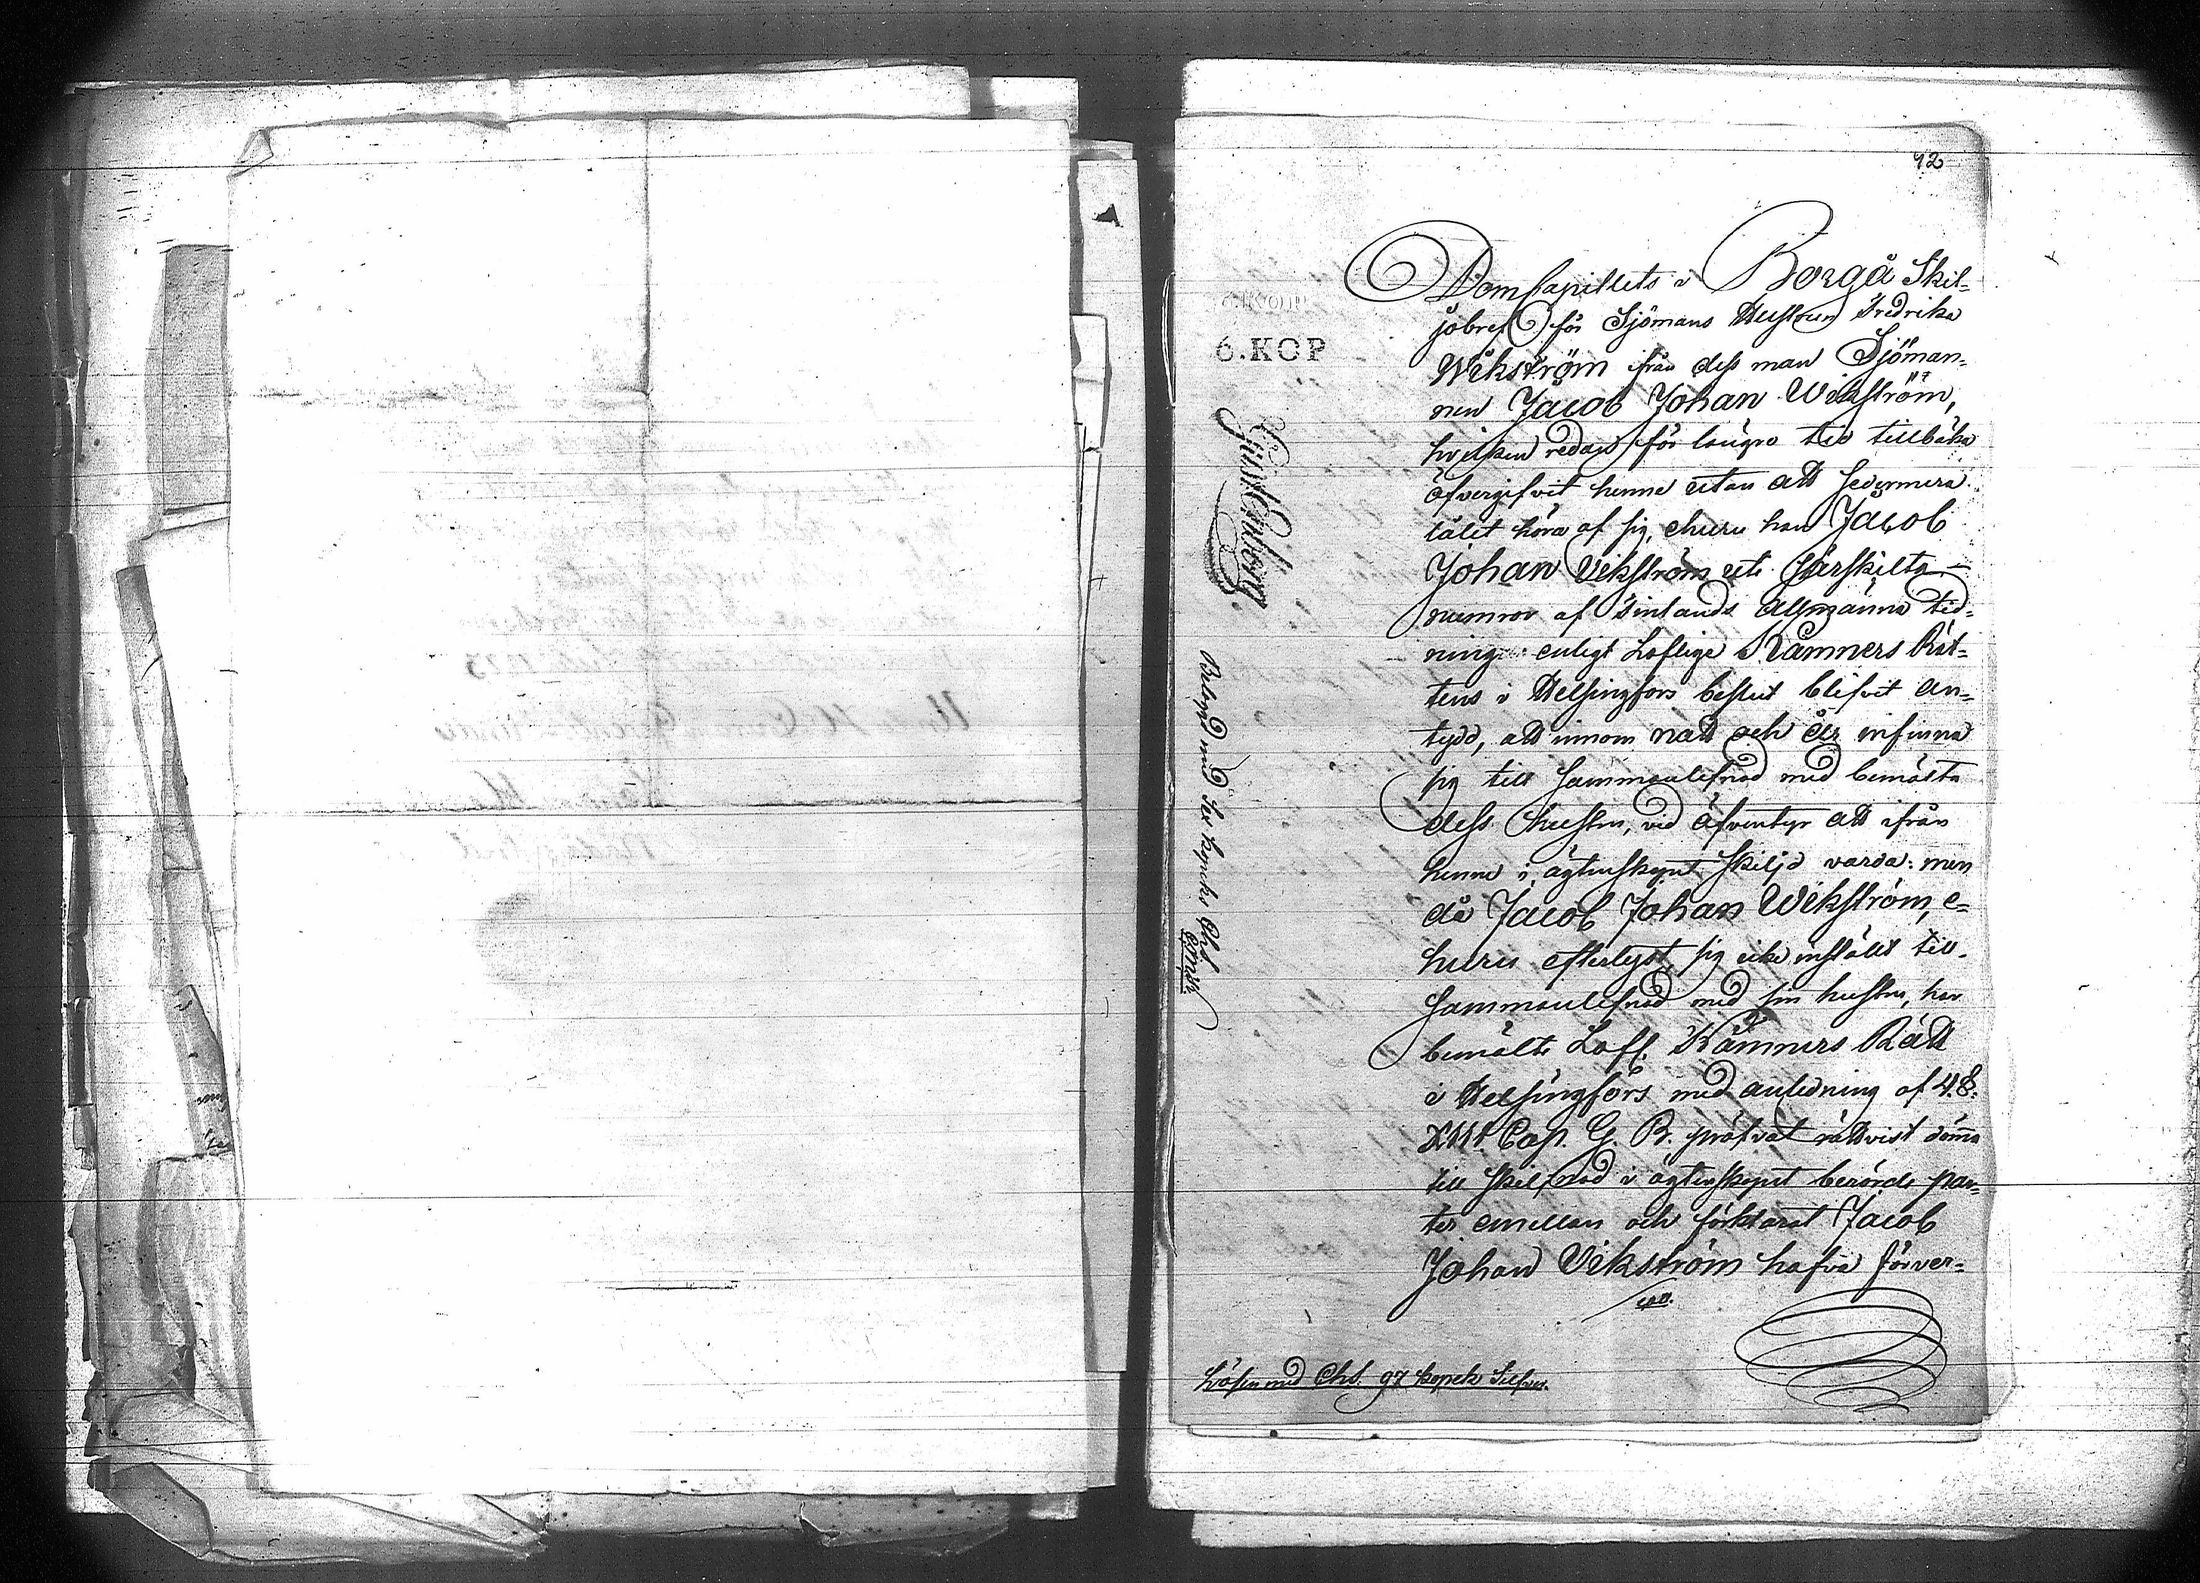 92
DomCapitlets i Borgå Skil-
jobref för Sjömans Hustrun Fredrika
Wikström ifrån dess man Sjöman-
nen Jacob Johan Wikström,
hvilken redan för längre tid tillbaka
öfvergifvit henne utan att sedermera
låtit höra af sig, ehuru han Jacob
Johan Vikström uti särskilta
numror af Finlands Allmänna Tid-
ning enligt Loflige Kämners Rät-
tens i Helsingfors beslut blifvit an-
tydd, att innom natt och år infinna
sig till sammanlefnad med bemälta
dess hustru, vid äfventyr att ifrån
henne i ägtenskapet skiljd varda: men
då Jacob Johan Wikström, e-
huru efterlyst, sig icke instält till
sammanlefnad med sin hustru, har
bemälte Lofl. Kämners Rätt
i Helsingfors med anledning af 4. §.
XIII Cap. G. B. pröfvat rättvist döma
till skilnad i ägtenskapet berörde par-
ter emellan och förklarat Jacob
Johan Vikström hafva förver-
6.KOP
6.KOP
Belagd med
Lösen med Chs. 97 kopek Silfver.